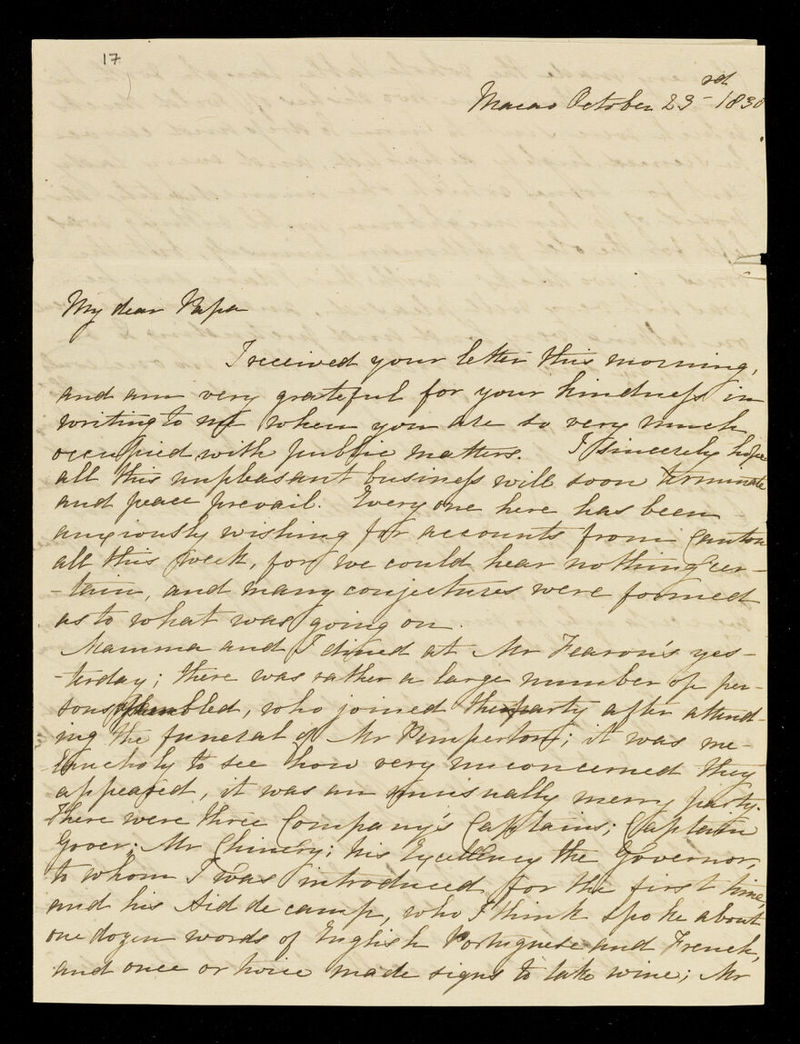 17
Macao October 23rd 1830
My dear Papa
I received your letter this morning,
and am very grateful for your kindness in
writing to me when you are so very much
occupied with public matters. I sincerely hope
all this unpleasant business will soon terminate
and peace prevail. Every one here has been
anxiously wishing for accounts from Canton
all this week, for we could hear nothing cer-
-tain, and many conjectures were formed
as to what was going on.
Mamma and I dined at Mr Fearon's yes-
-terday; there was rather a large number of per-
sons assembled, who joined the party after attend-
ing the funeral of Mr Pemperton; it was me-
lancholy to see how very unconcerned they
appeared, it was an unusually merry party.
There were three Company's Captains; Captain
Gover; Mr Chinery; his Excellency the Governor,
to whom I was introduced for the first time,
and his Aid de camp, who I think spoke about
one dozen words of English Portuguese and French,
and once or twice made signs to take wine; Mr